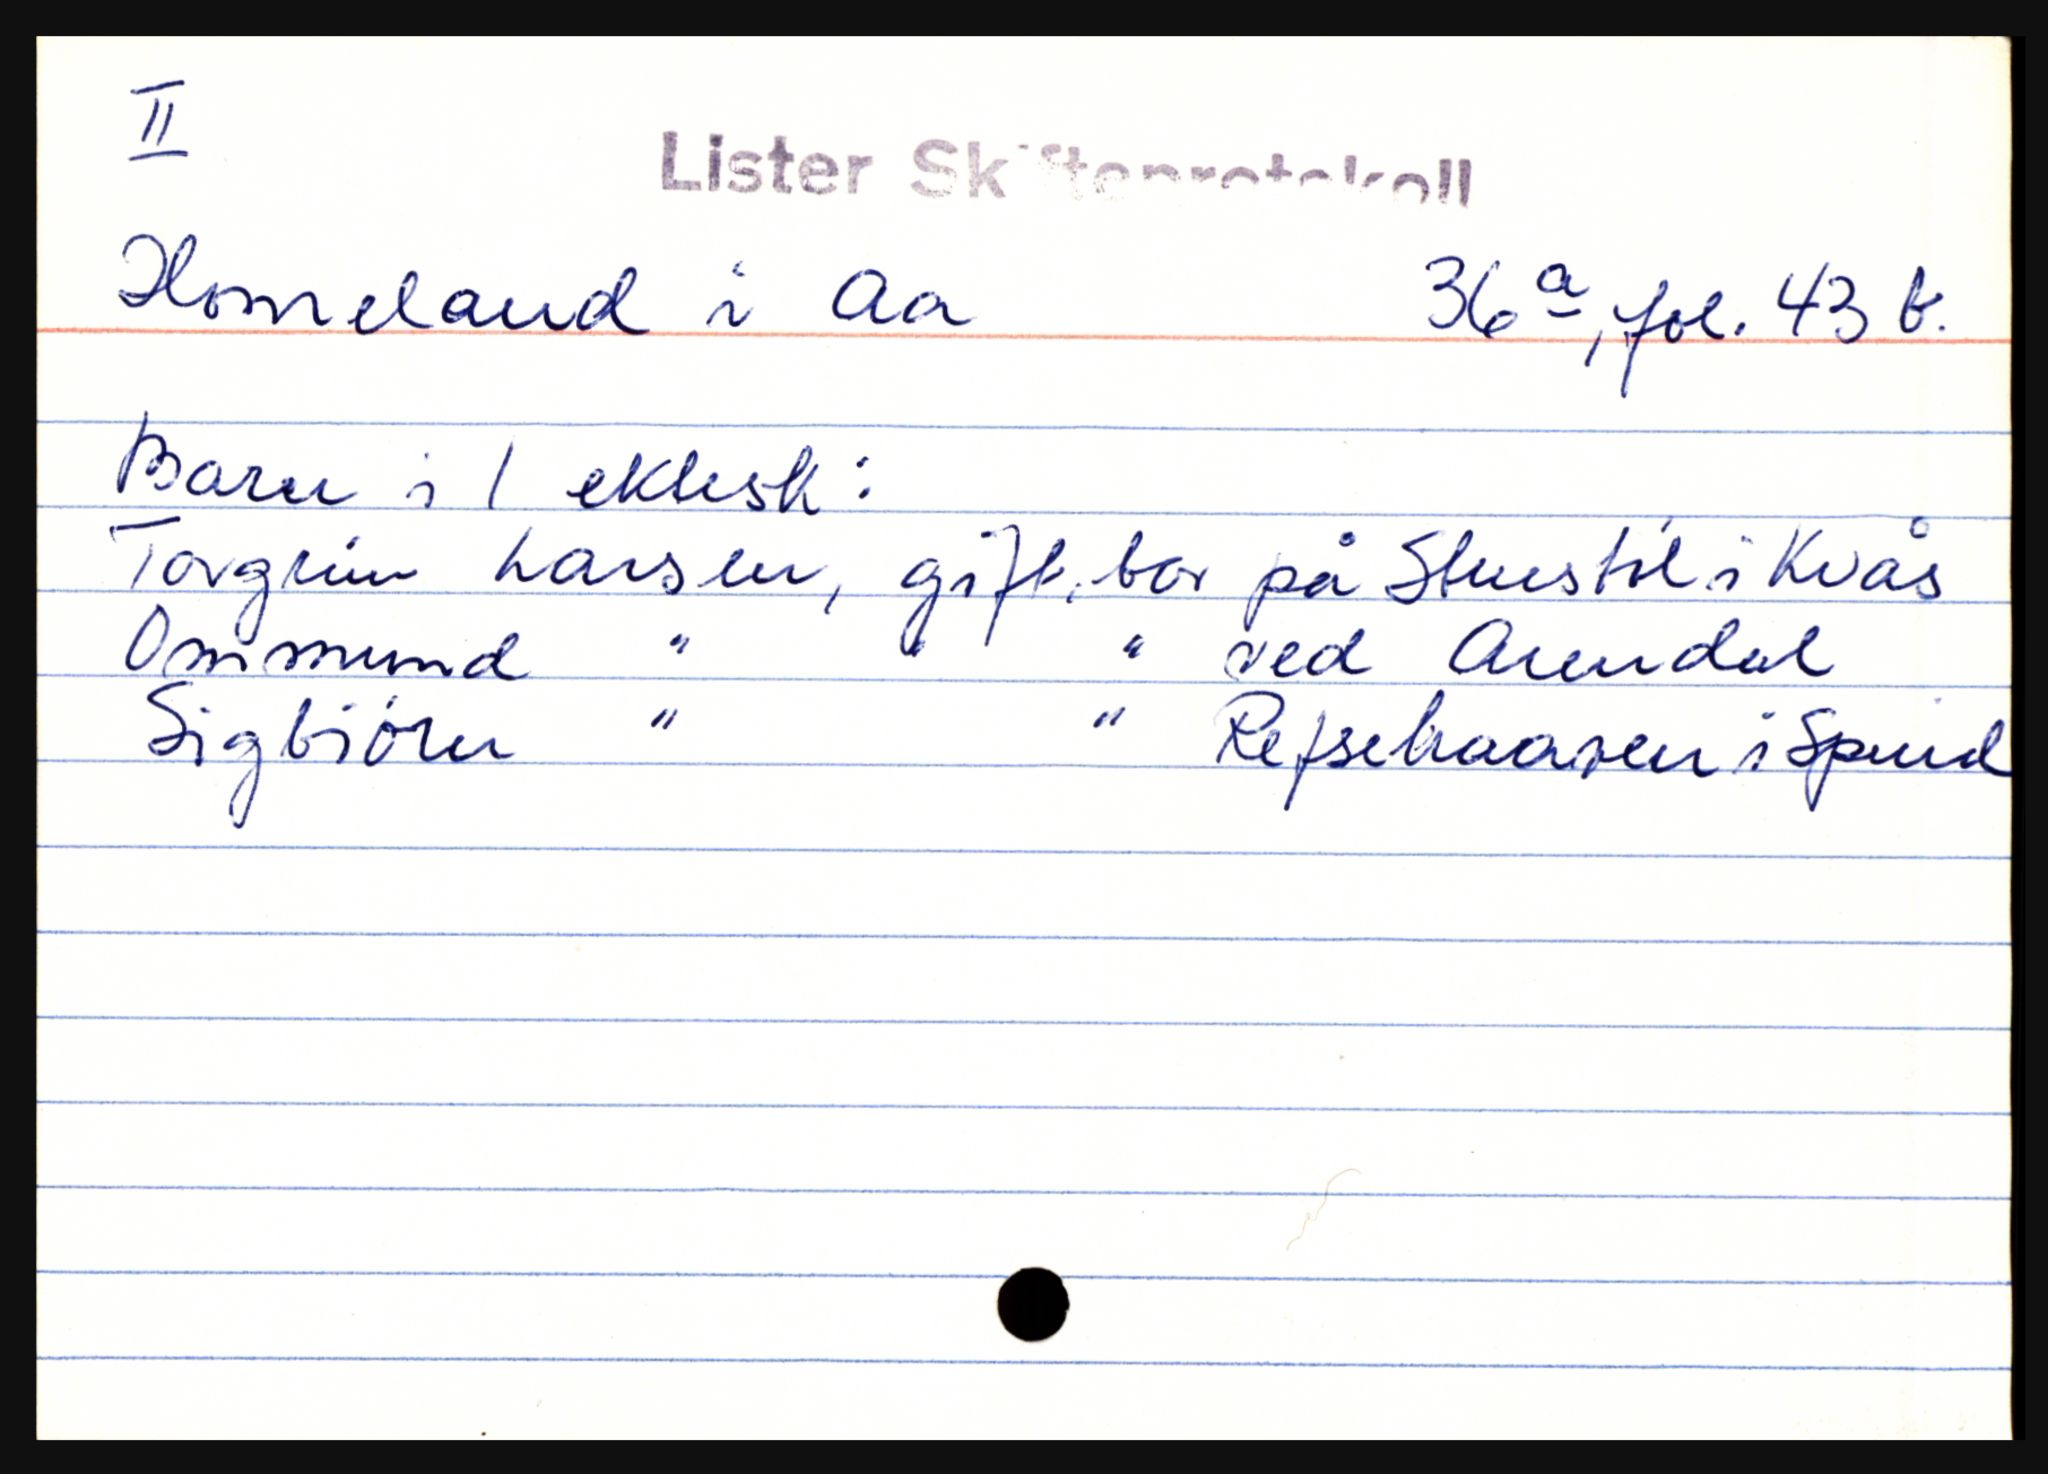 II
Lister Skifteprotokoll
Homeland i Aa 36 a, fol. 43 b.
Barn i 1 ektesk:
Torgrim Larsen, gift, bor på Stuestöl i Kvås
Ommund " " " ved Arendal
Sigbjörn " " Refsehaaven i Spind